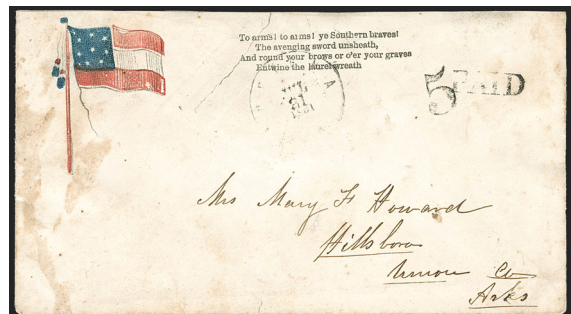 To arms! to arms! ye Southern braves!
The avenging sword unsheath,
And round your brows or o'er your graves
Entwine the laurel wreath
JUL
31
5 PAID
Mrs Mary F Howard
Hillsboro
Union Co
Arks